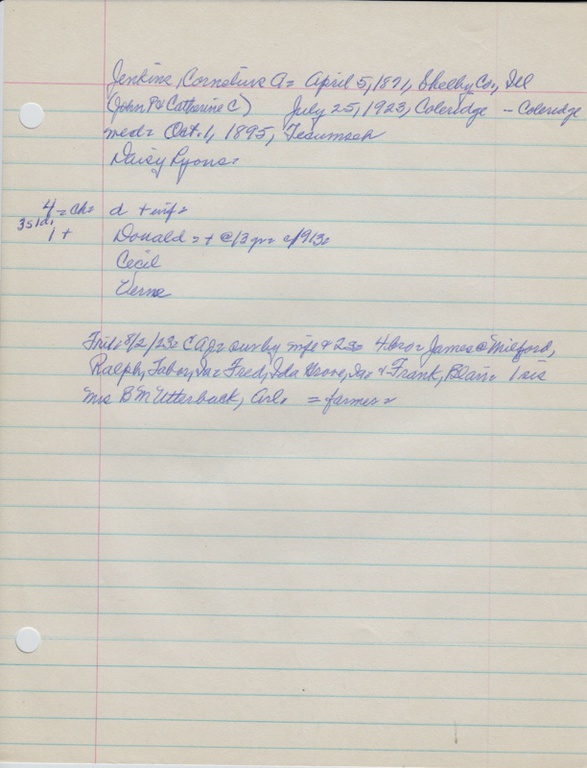 Jenkins, Cornelius A = April 5, 1871, Shelby Co., Ill
(John P & Catherine C) July 25, 1923, Coleridge - Coleridge
med = Oct. 1, 1895, Tecumseh
Daisy Lyons =
4 = ch = d + inf =
3s 1d,
1 + Donald = + @ 13 yr = c/913 =
Cecil
Verne
Fri 8/2/23 = C AJ = sur by wife & 23 = 4 bro = James @ Milford,
Ralph, Tabor, Ia = Fred, Ida Grove, Ia + Frank, Blair = 1 sis
Mrs B M Utterback, Arl. = farmer =